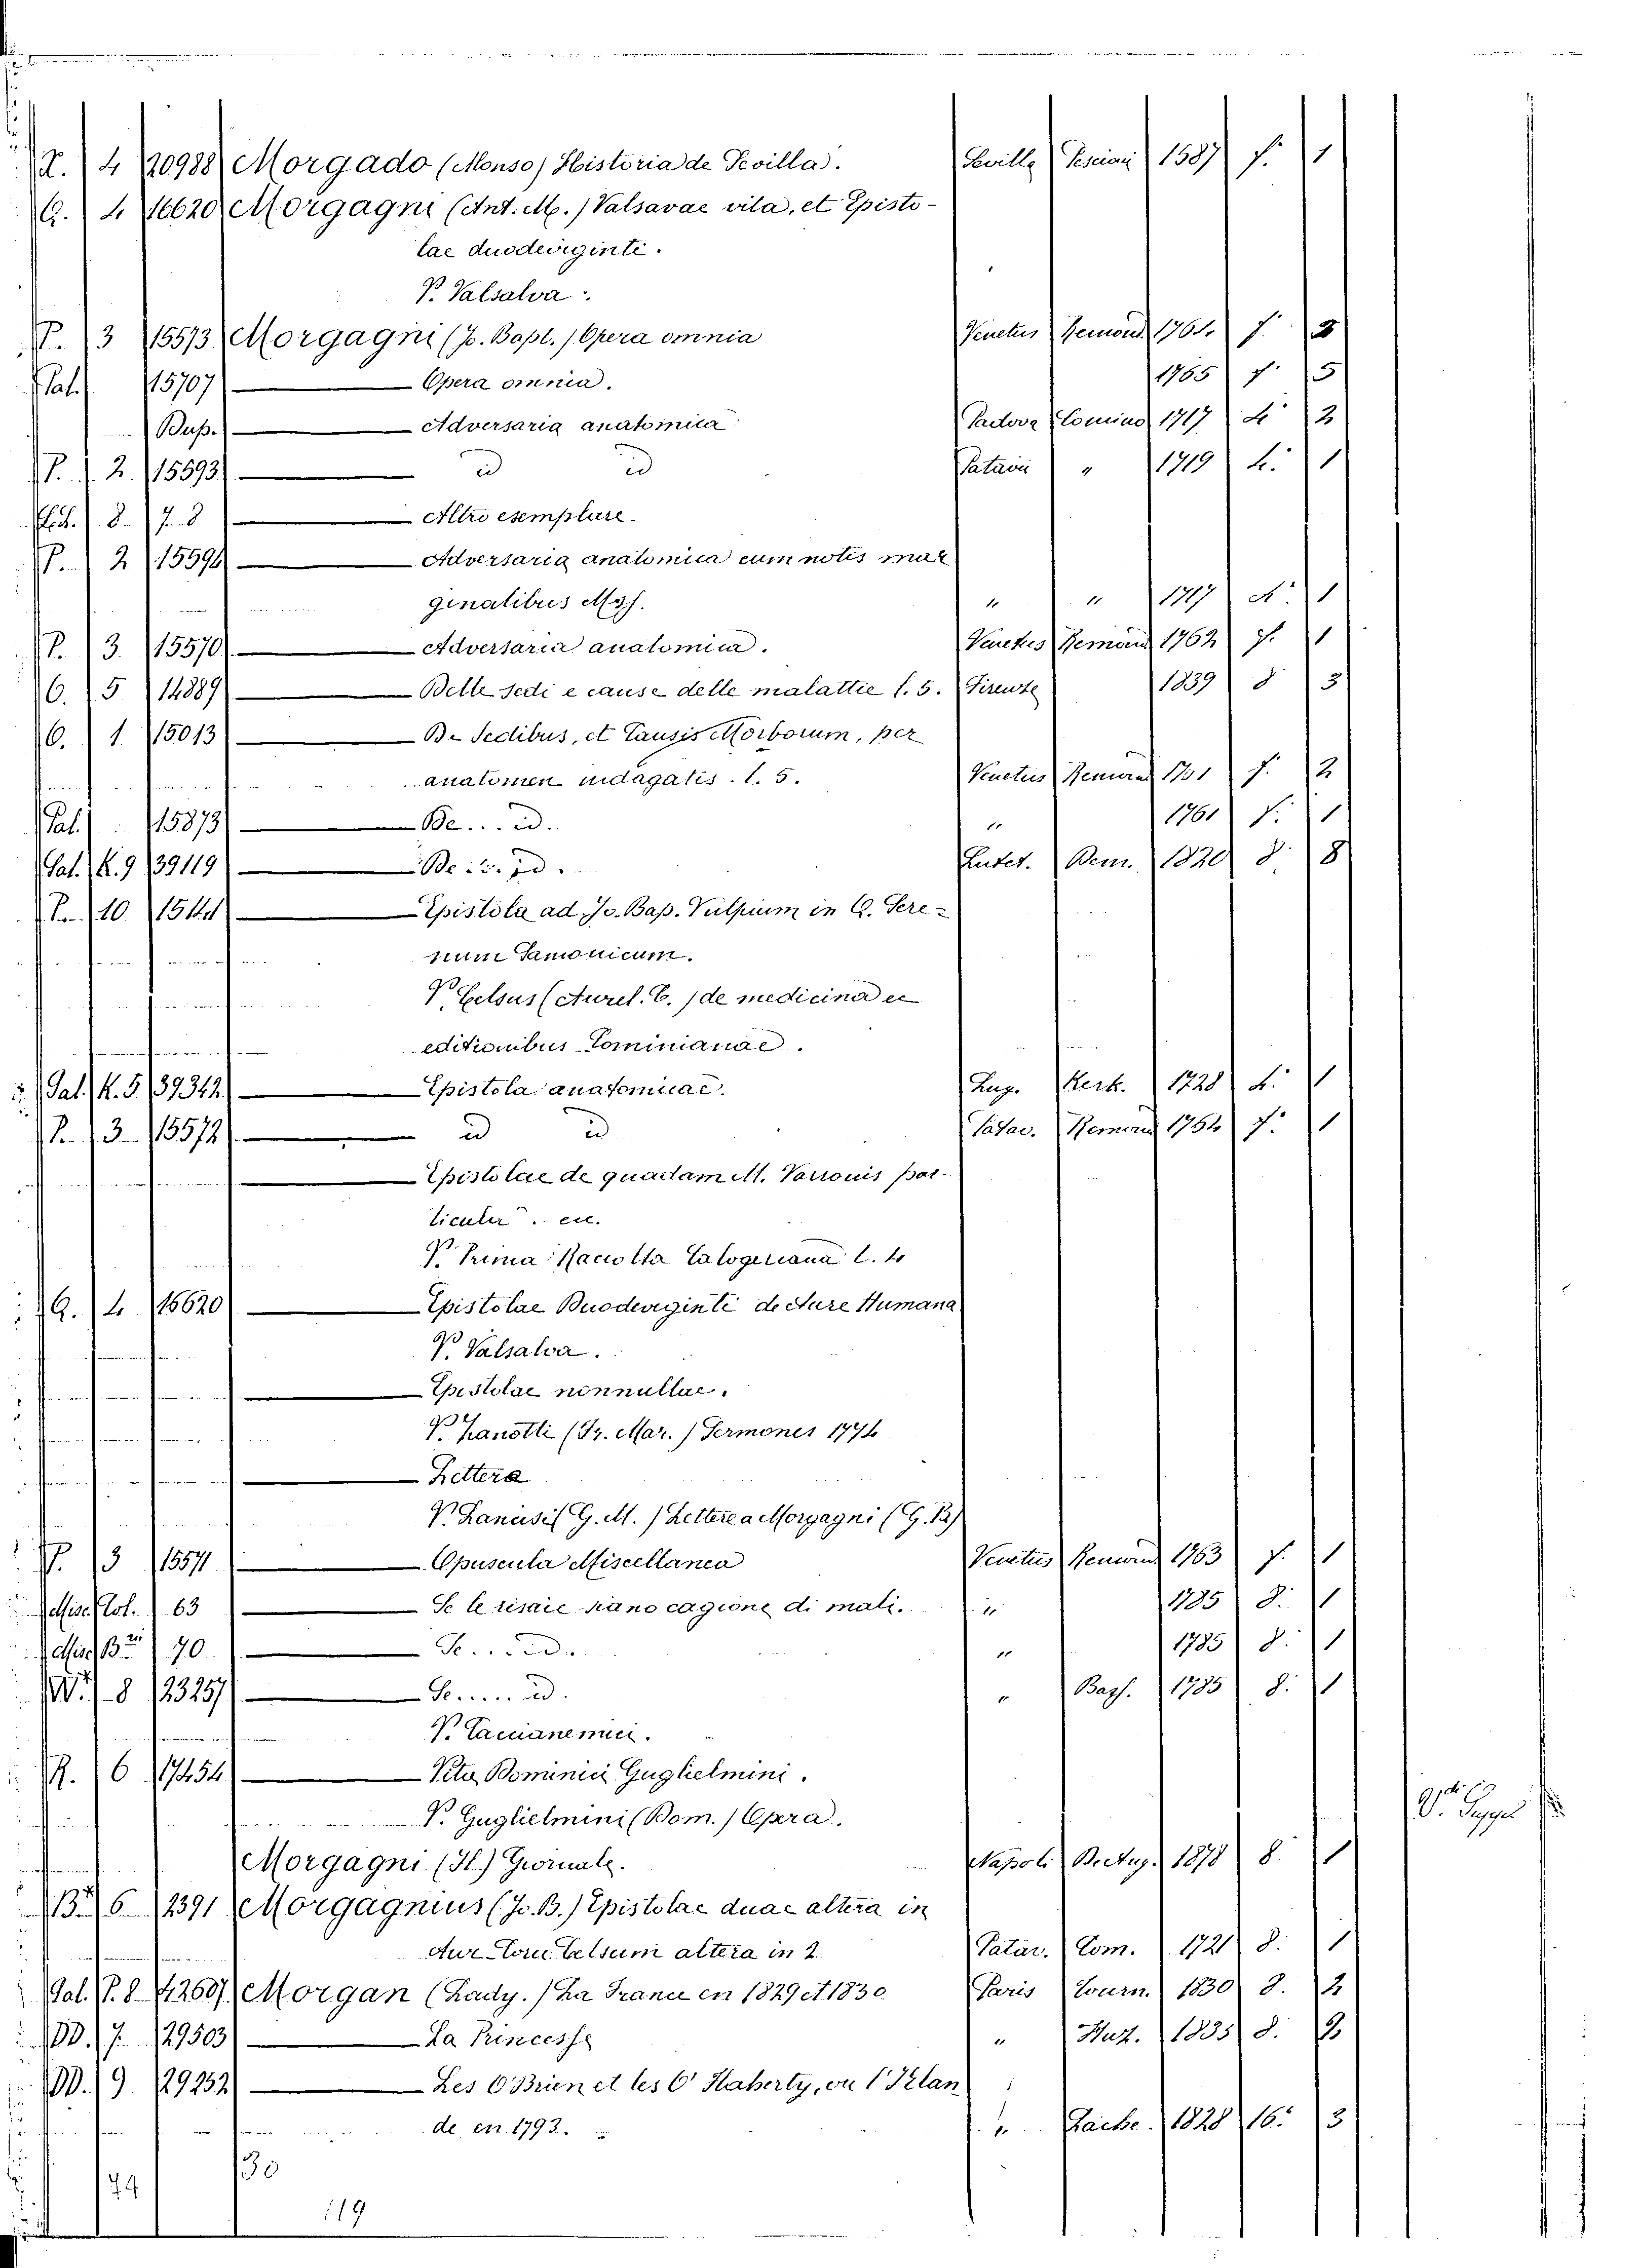 R. 4 20988 Morgado (Alonso) Historia de Sevilla. Seville 1587 f. 1
G. 4 16620 Morgagni (Ant. M.) Valsavae vita, et Episto-
lae duodeviginti.
V. Valsalva.
P. 3 15573 Morgagni (Jo. Bapt.) Opera omnia Venetus Remond. 1764. f. 2
Pal. 15707 — Opera omnia. 1765 f. 5
Bup. — Adversaria anatomica Padova Comino 1717 4 2
P. 2 15593 — id id Patavii " 1719 4. 1
8 7. 8 — Altro esemplare.
P. 2 15594 — Adversaria anatomica cum notis mar
ginalibus Mss. " " 1717 4. 1
P. 3. 15570 — Adversaria anatomica. Venetus Remond 1762 f. 1
O. 5 14889 — Delle sedi e cause delle malattie l. 5. Firenze 1839 8 3
O. 1 15013 — De Sedibus, et Causis Morborum, per
anatomen indagatis. l. 5. Venetus Remond 1761 f. 2
Pal. 15873 — De... id. " 1761 f. 1
Pal. K. 9 39119 — De... id. Lutet. Dem. 1820 8. 8
P. 10. 15144 — Epistola ad Jo. Bap. Vulpium in Q. Sere-
num Samonicum.
V. Celsus (Aurel. C.) de medicina ex
editionibus Cominianae.
Pal. K. 5. 39342. — Epistola anatomicae. Lug. Kerk. 1728 4. 1
P. 3 15572 — id id Patav. Remond 1764 f. 1
— Epistolae de quadam M. Varronis par-
ticula. ec.
V. Prima Raccolta Calogeriana t. 4
G. 4 16620 — Epistolae Duodeviginti de Aure Humana
V. Valsalva.
— Epistolae nonnullae.
V. Zanotti (Fr. Mar.) Sermones 1774
— Lettera
V. Lancisi (G. M.) Lettere a Morgagni (G. B.)
P. 3 15571 — Opuscula Miscellanea Venetus Remond 1763 f. 1
Misc. Tot. 63 — Se le risaie siano cagione di mali. " 1785 8. 1
Misc. B 70 — Se... id. " 1785 8. 1
W. 8 23257 — Se... id. " Bass. 1785 8. 1
V. Caccianemici.
R. 6 17454 — Vita Dominici Guglielmini.
V. Guglielmini (Dom.) Opera.
Morgagni (Il) Giornale. Napoli 1878 8 1
B. 6 2391 Morgagnius (Jo. B.) Epistolae duae altera in
Aur. Corn. Celsum altera in 2 Patav. Com. 1721 8. 1
Pal. P. 8 42607 Morgan (Lady.) La France en 1829 et 1830 Paris Tourn. 1830 8. 2
DD. 7. 29503 — La Princesse " 1835 8. 2
DD. 9 29232 — Les O'Brien et les O'Flaherty, ou l'Irlan
de en 1793. " 1828 16. 3
74
30
119